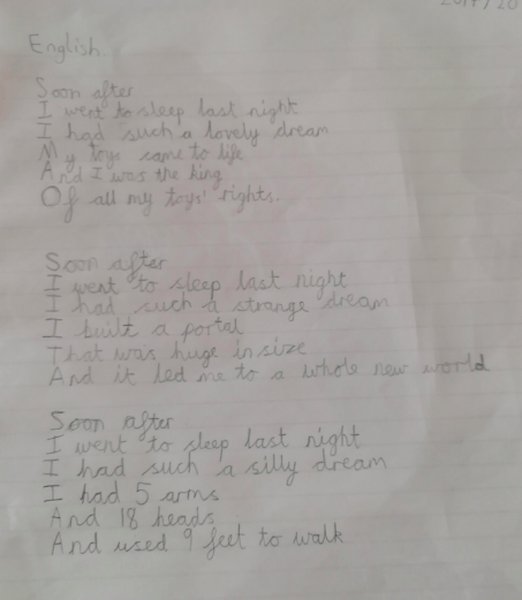 English
Soon after
I went to sleep last night
I had such a lovely dream
My toys came to life
And I was the king
Of all my toys' rights.
Soon after
I went to sleep last night
I had such a strange dream
I built a portal
That was huge in size
And it led me to a whole new world
Soon after
I went to sleep last night
I had such a silly dream
I had 5 arms
And 18 heads
And used 9 feet to walk